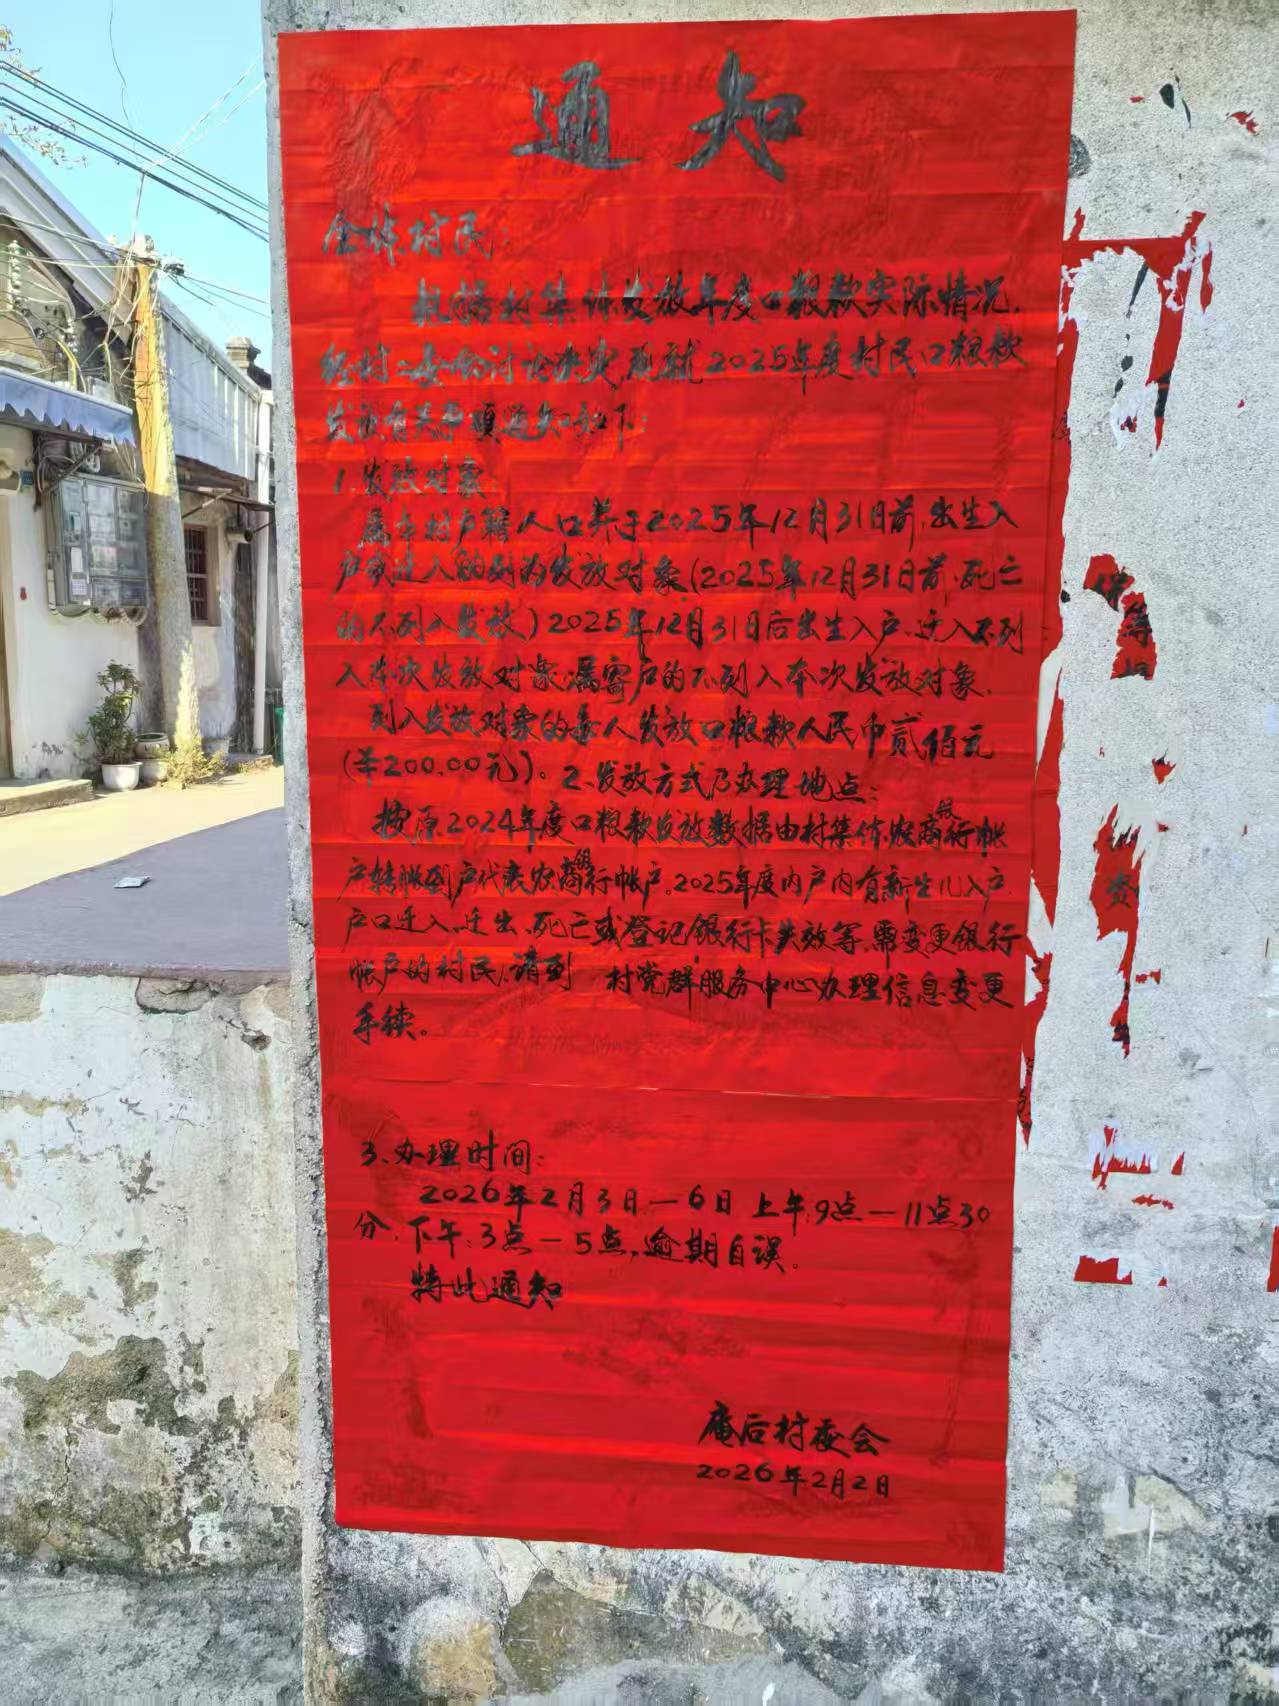 通知
全体村民：
根据村集体发放年度口粮款实际情况，
经村二委会讨论决定，现就2025年度村民口粮款
发放有关事项通知如下：
1.发放对象：
属本村户籍人口并于2025年12月31日前，出生入
户或迁入的列为发放对象(2025年12月31日前，死亡
的不列入发放)2025年12月31日后出生入户、迁入不列
入本次发放对象，属寄户的不列入本次发放对象，
列入发放对象的每人发放口粮款人民币贰佰元
(￥200.00元)。2、发放方式及办理地点：
按原2024年度口粮款发放数据由村集体农商银行帐
户转帐到户代表农商银行帐户。2025年度内户内有新生儿入户、
户口迁入、迁出、死亡或登记银行卡失效等，需变更银行
帐户的村民，请到 村党群服务中心办理信息变更
手续。
3、办理时间：
2026年2月3日—6日 上午：9点—11点30
分，下午：3点—5点，逾期自误。
特此通知
庵后村委会
2026年2月2日
资